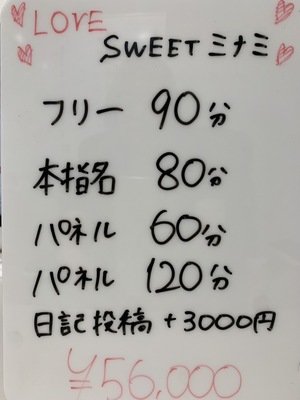 LOVE
SWEETミナミ
フリー 90分
本指名 80分
パネル 60分
パネル 120分
日記投稿 +3000円
¥56,000